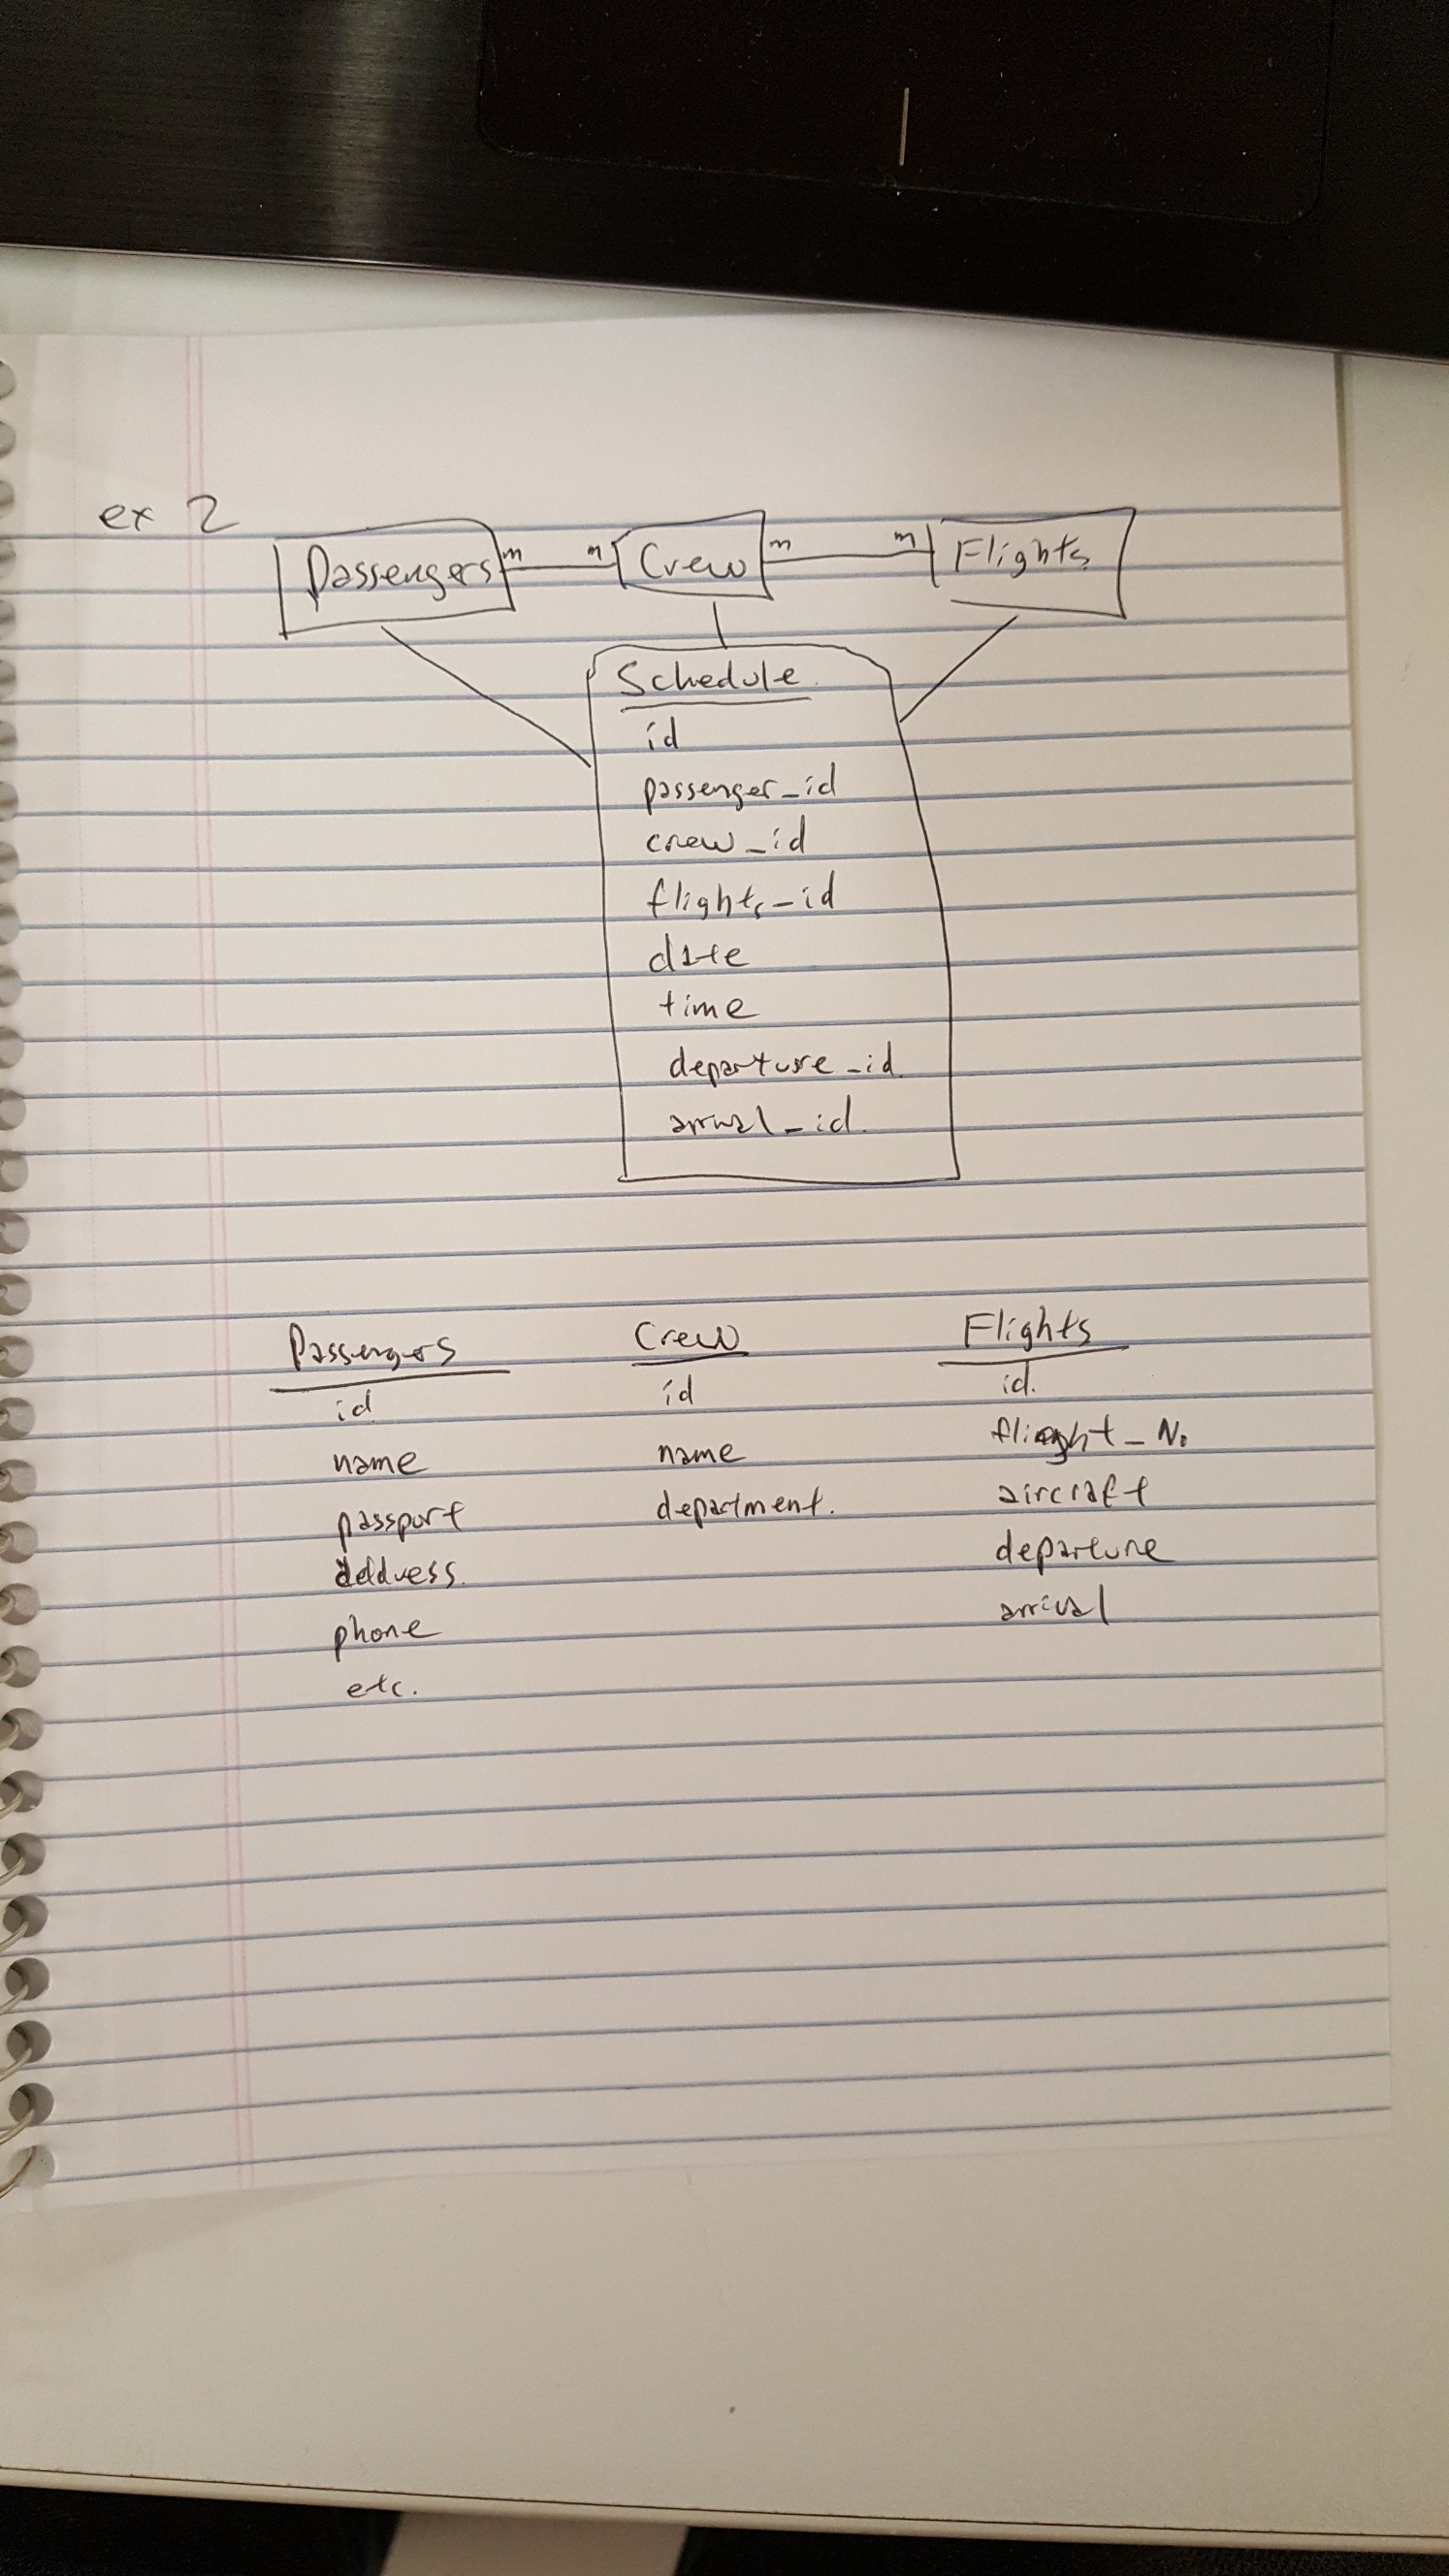 ex 2
Passengers m n Crew m m Flights
Schedule
id
passenger_id
crew_id
flights_id
date
time
departure_id
arrival_id
Passengers
id
name
passport
address
phone
etc.
Crew
id
name
department.
Flights
id.
flight_No
aircraft
departure
arrival